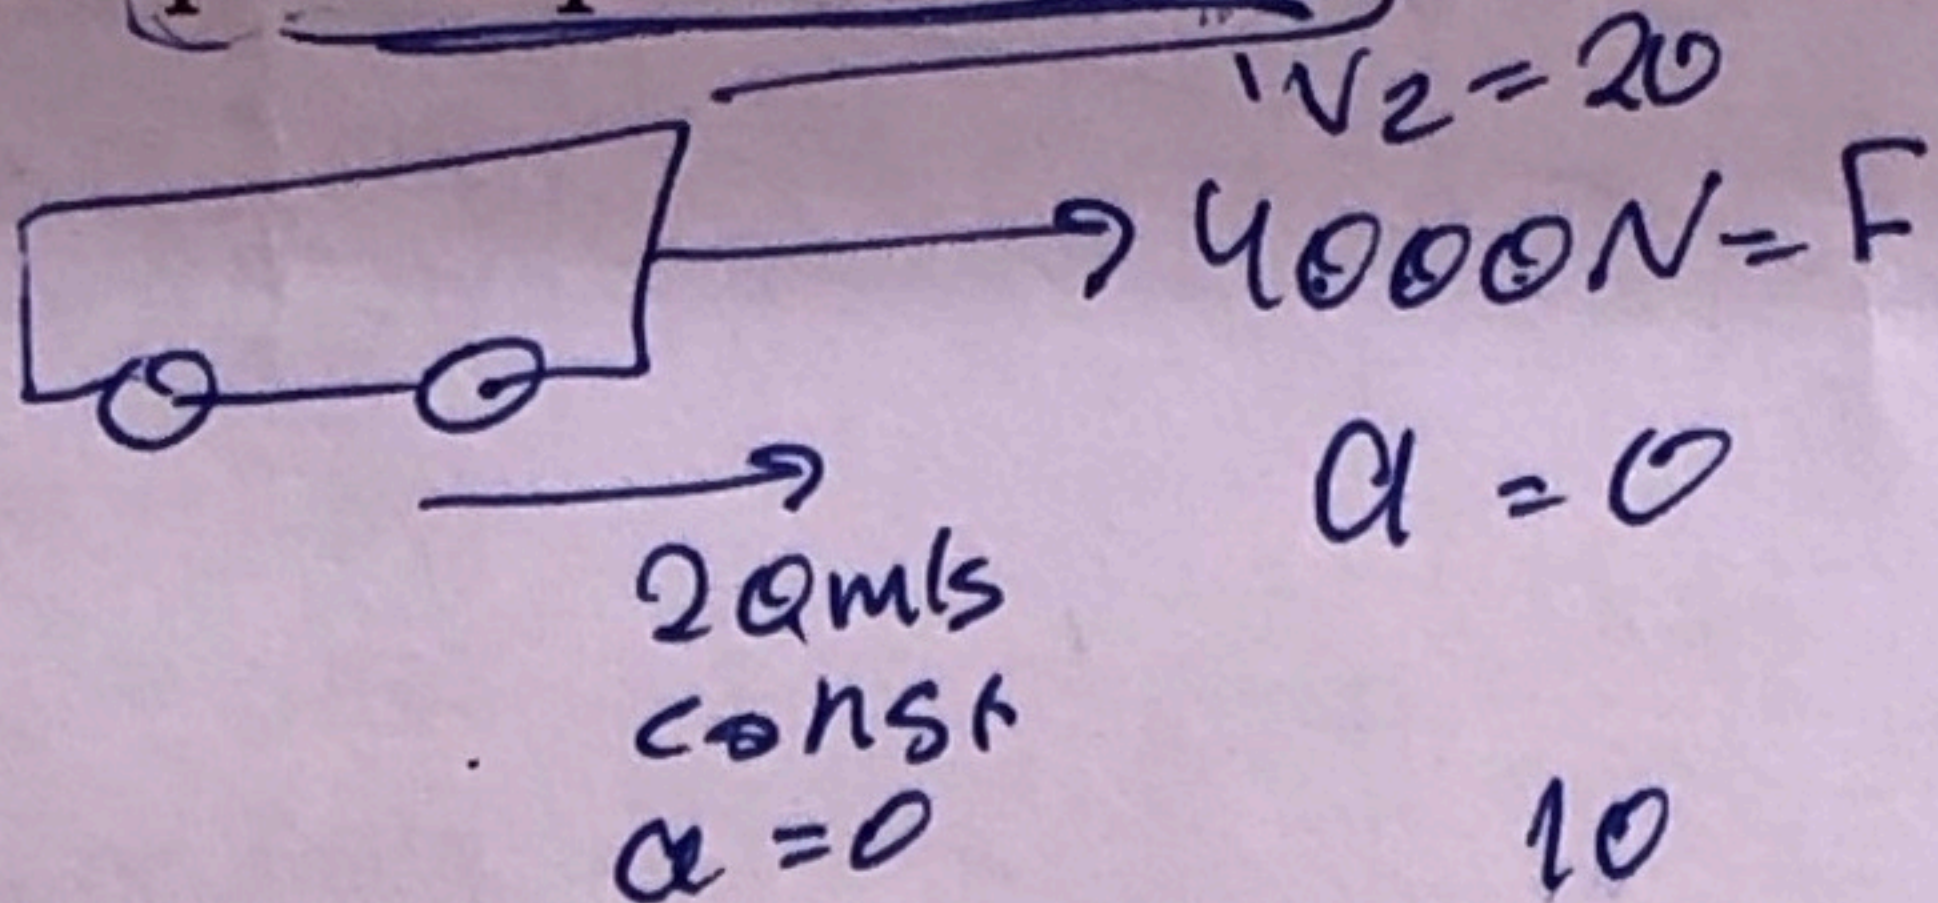 V2 = 20
4000N = F
a = 0
20m/s
const
a = 0
10